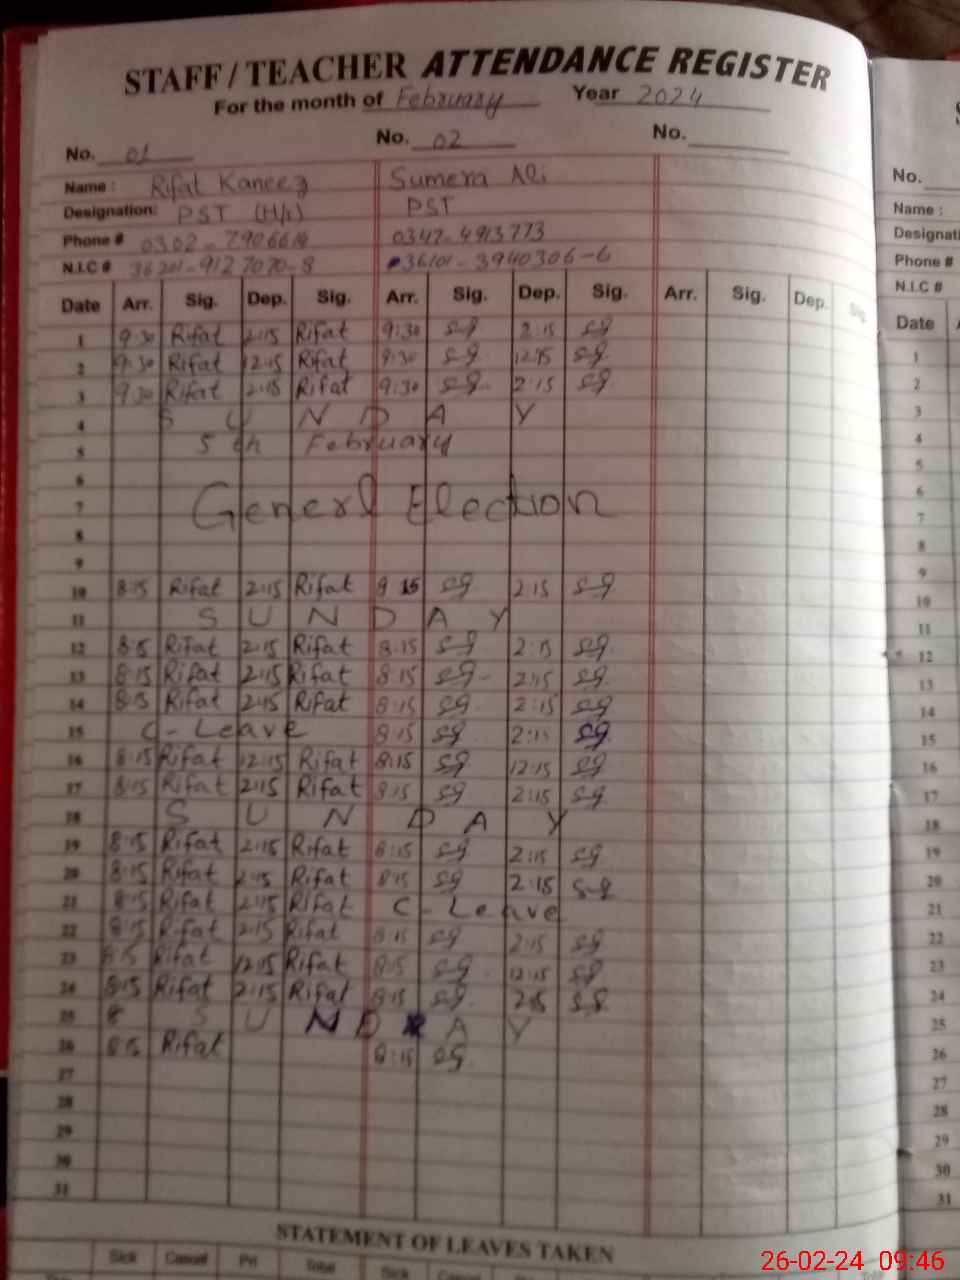 STAFF / TEACHER ATTENDANCE REGISTER
For the month of February Year 2024
No. 01 No. 02 No.
Name : Rifat Kaneez Sumera Ali
Designation: PST (H/t) PST
Phone # 0302-7906616 0347-4913773
N.I.C # 36201-9127070-8 36101-3940306-6
Date Arr. Sig. Dep. Sig. Arr. Sig. Dep. Sig. Arr. Sig. Dep. Sig.
1 9:30 Rifat 2:15 Rifat 9:30 2:15
2 9:30 Rifat 12:15 Rifat 9:30 12:15
3 9:30 Rifat 2:15 Rifat 9:30 2:15
4 S U N D A Y
5 5th February
6
7 Generl Election
8
9
10 8:15 Rifat 2:15 Rifat 8 15 2:15
11 S U N D A Y
12 8:15 Rifat 2:15 Rifat 8:15 2:15
13 8:15 Rifat 2:15 Rifat 8:15 2:15
14 8:15 Rifat 2:15 Rifat 8:15 2:15
15 C - Leave 8:15 2:15
16 8:15 Rifat 12:15 Rifat 8:15 12:15
17 8:15 Rifat 2:15 Rifat 8:15 2:15
18 S U N D A Y
19 8:15 Rifat 2:15 Rifat 8:15 2:15
20 8:15 Rifat 2:15 Rifat 8:15 2:15
21 8:15 Rifat 2:15 Rifat C - Leave
22 8:15 Rifat 2:15 Rifat 8:15 2:15
23 8:15 Rifat 12:15 Rifat 8:15 12:15
24 8:15 Rifat 2:15 Rifat 8:15 2:15
25 8 S U N D A Y
26 8:15 Rifat 8:15
27
28
29
30
31
STATEMENT OF LEAVES TAKEN
Sick Casual Pvt Total Sick
No.
Name :
Designati
Phone #
N.I.C #
Date
1
2
3
4
5
6
7
8
9
10
11
12
13
14
15
16
17
18
19
20
21
22
23
24
25
26
27
28
29
30
31
26-02-24 09:46